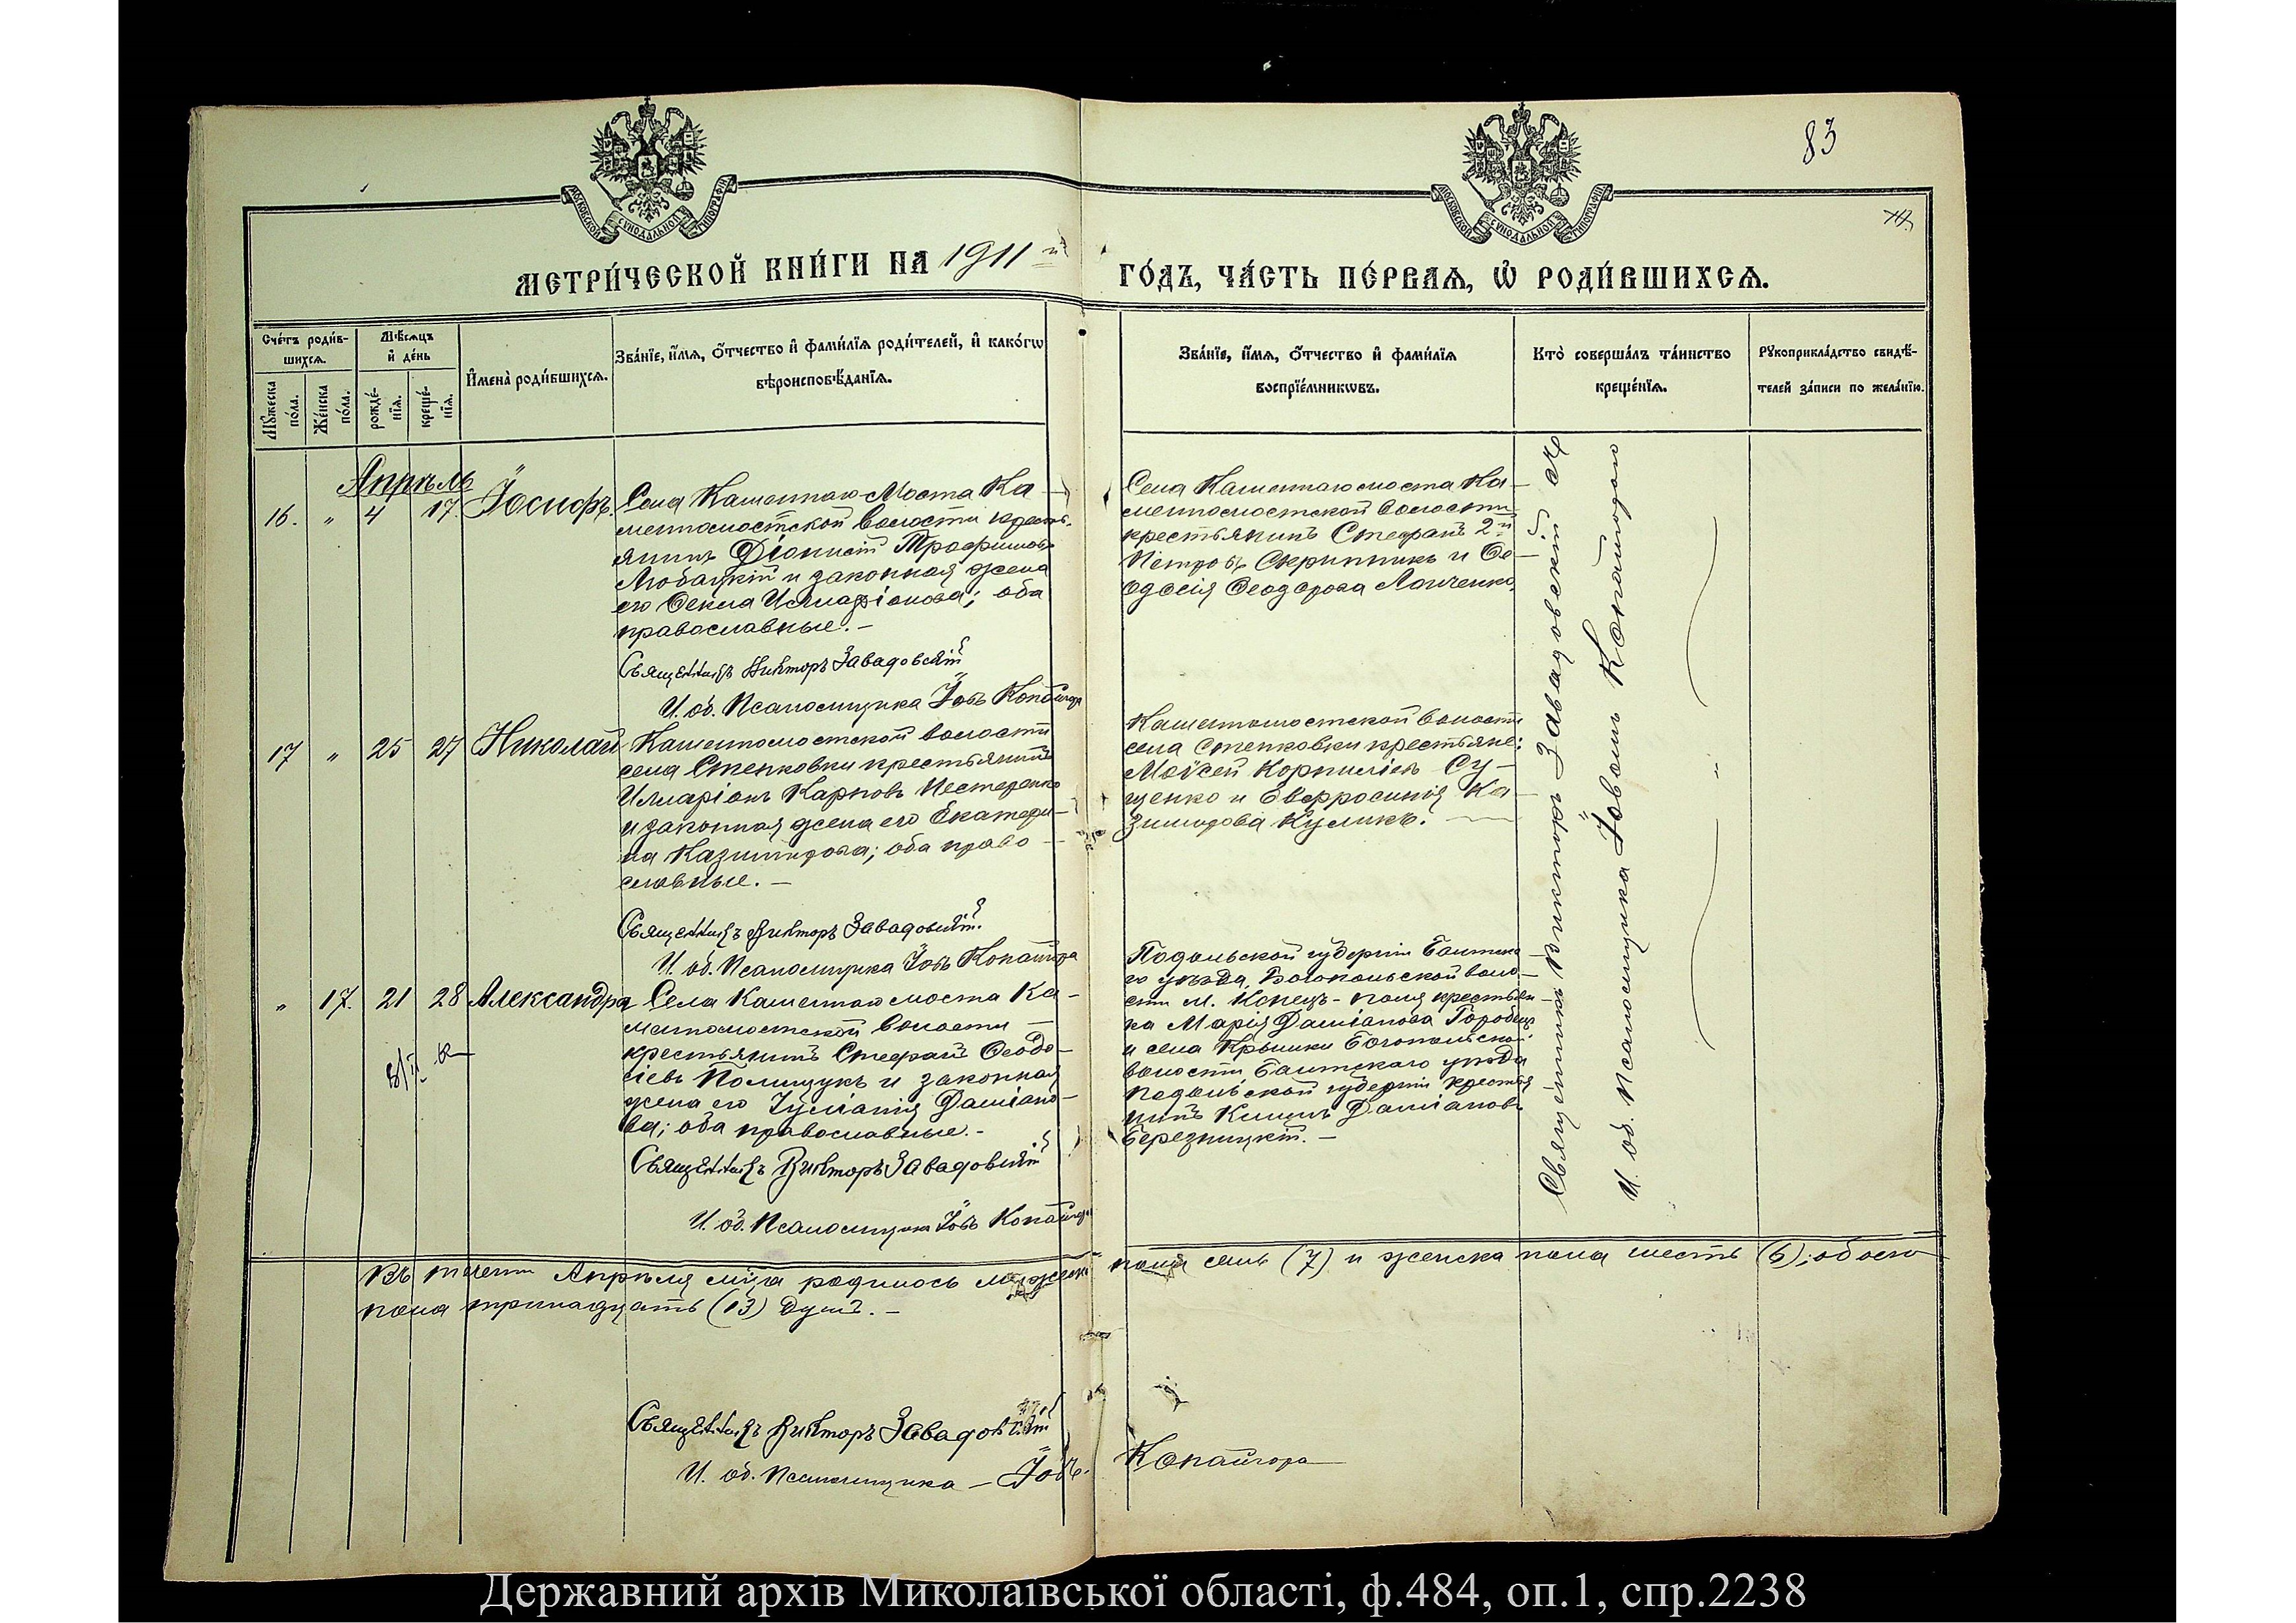 83
МОСКОВСКОЙ СѴНОДАЛЬНОЙ ТИПОГРАФІИ
МОСКОВСКОЙ СѴНОДАЛЬНОЙ ТИПОГРАФІИ
МЕТРИ́ЧЕСКОЙ КНИ́ГИ НА 1911 й
ГО́ДЪ, ЧА́СТЬ ПЕ́РВАѦ, Ѡ҆ РОДИ́ВШИХСѦ.
Сче́тъ роди́в-
шихсѧ.
Мꙋ́жеска по́ла.
Же́нска по́ла.
Мѣ́сѧцъ
и҆ де́нь
рожде́-
нїѧ.
креще́-
нїѧ.
И҆мена̀ роди́вшихсѧ.
Зва́нїе, и҆́мѧ, ѻ҆́тчество и҆ фами́лїѧ роди́телей, и҆ како́гѡ
вѣроисповѣ́данїѧ.
Зва́нїе, и҆́мѧ, ѻ҆́тчество и҆ фами́лїѧ
воспрїе́мникѡвъ.
Кто̀ соверша́лъ та́инство
креще́нїѧ.
Рꙋкоприкла́дство свидѣ́-
телей за́писи по жела́нїю.
Апрѣль
16. " 4 17. Іосифъ.
Села Каменнаго-Моста Ка-
менномостской волости кресть-
янинъ Діонисій Трофимовъ
Любацкій и законная жена
его Ѳекла Иларіонова; оба
православные. -
Священникъ Викторъ Завадовскій
И. об. Псаломщика Іовъ Копайгора
Села Каменнаго моста Ка-
менномостской волости
крестьянинъ Стефанъ 2-й
Петровъ Скрипникъ и Ѳе-
одосія Ѳеодорова Лонченко.
17 " 25 27 Николай
Каменномостской волости
села Степковки крестьянинъ
Илларіонъ Карповъ Нестеренко
и законная жена его Екатери-
на Казимирова; оба право-
славные. -
Священникъ Викторъ Завадовскій.
И. об. Псаломщика Іовъ Копайгора
Каменномостской волости
села Степковки крестьяне:
Моѵсей Корниліевъ Су-
щенко и Евфросинія Ка-
зимирова Куликъ.
" 17. 21 28 Александра
Села Каменнаго моста Ка-
менномостской волости
крестьянинъ Стефанъ Ѳеодо-
сіевъ Полищукъ и законная
жена его Іуліанія Даміано-
ва; оба православные. -
Священникъ Викторъ Завадовскій
И. об. Псаломщика Іовъ Копайгора
Подольской губерніи Балтска-
го уѣзда, Богопольской воло-
сти м. Конецъ-поля крестьян-
ка Марія Даміанова Городецъ
и села Крынки Богопольской
волости Балтскаго уѣзда
Подольской губерніи крестья
нинъ Климъ Даміановъ
Березницкій. -
Священникъ Викторъ Завадовскій съ
И. об. Псаломщика Іовомъ Копайгорою
Въ теченіи Апрѣля мѣсяца родилось мужеска пола семь (7) и женска пола шесть (6); обоего
пола тринадцать (13) душъ. -
Священникъ Викторъ Завадовскій
И. об. Псаломщика - Іовъ Копайгора
Державний архів Миколаївської області, ф.484, оп.1, спр.2238